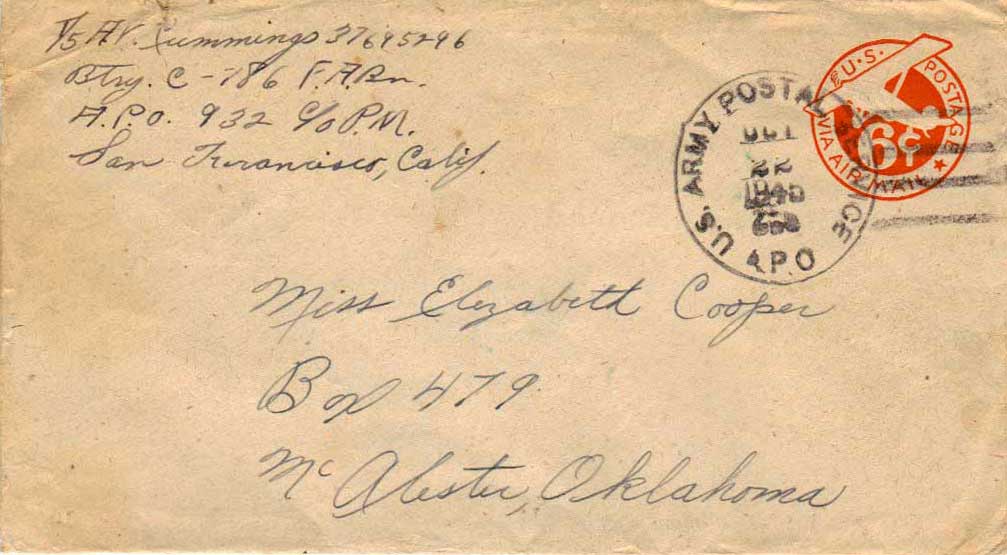 T/5 A.V. Cummings 37695296
Btry. C - 786 F.A.Bn.
A.P.O. 932 c/o P.M.
San Francisco, Calif.
U.S. ARMY POSTAL SERVICE
OCT
22
A.P.O
U.S. POSTAGE
6¢
VIA AIR MAIL
Miss Elizabeth Cooper
Box 479
McAlester, Oklahoma